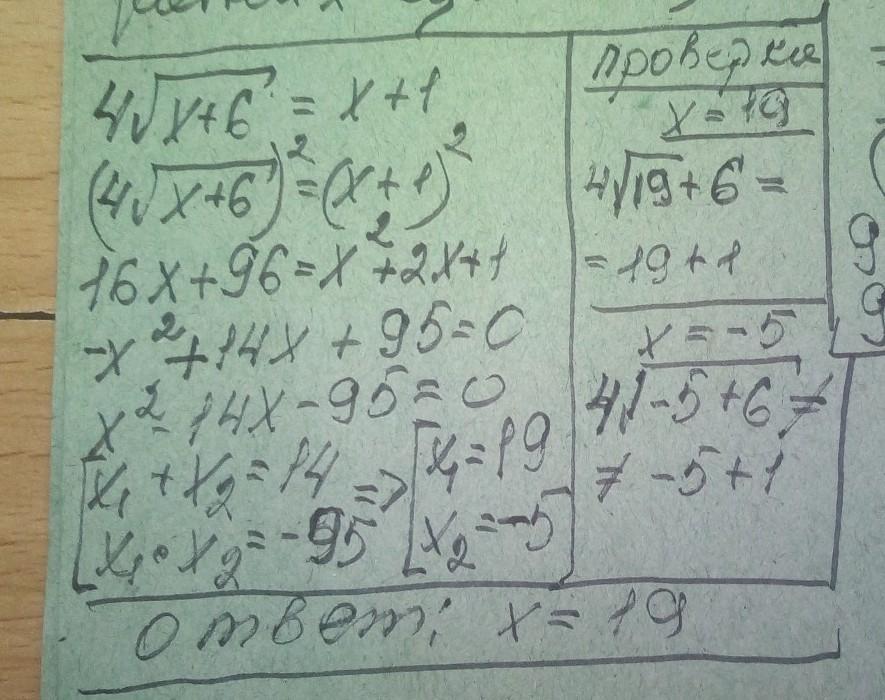 4√(x+6) = x+1
(4√(x+6))² = (x+1)²
16x+96 = x²+2x+1
-x²+14x+95=0
x²-14x-95=0
[x₁+x₂=14
x₁•x₂=-95
=> [x₁=19
x₂=-5
проверка
x=19
4√19+6 =
=19+1
x=-5
4√-5+6 ≠
≠ -5+1
Ответ: x=19
9
9